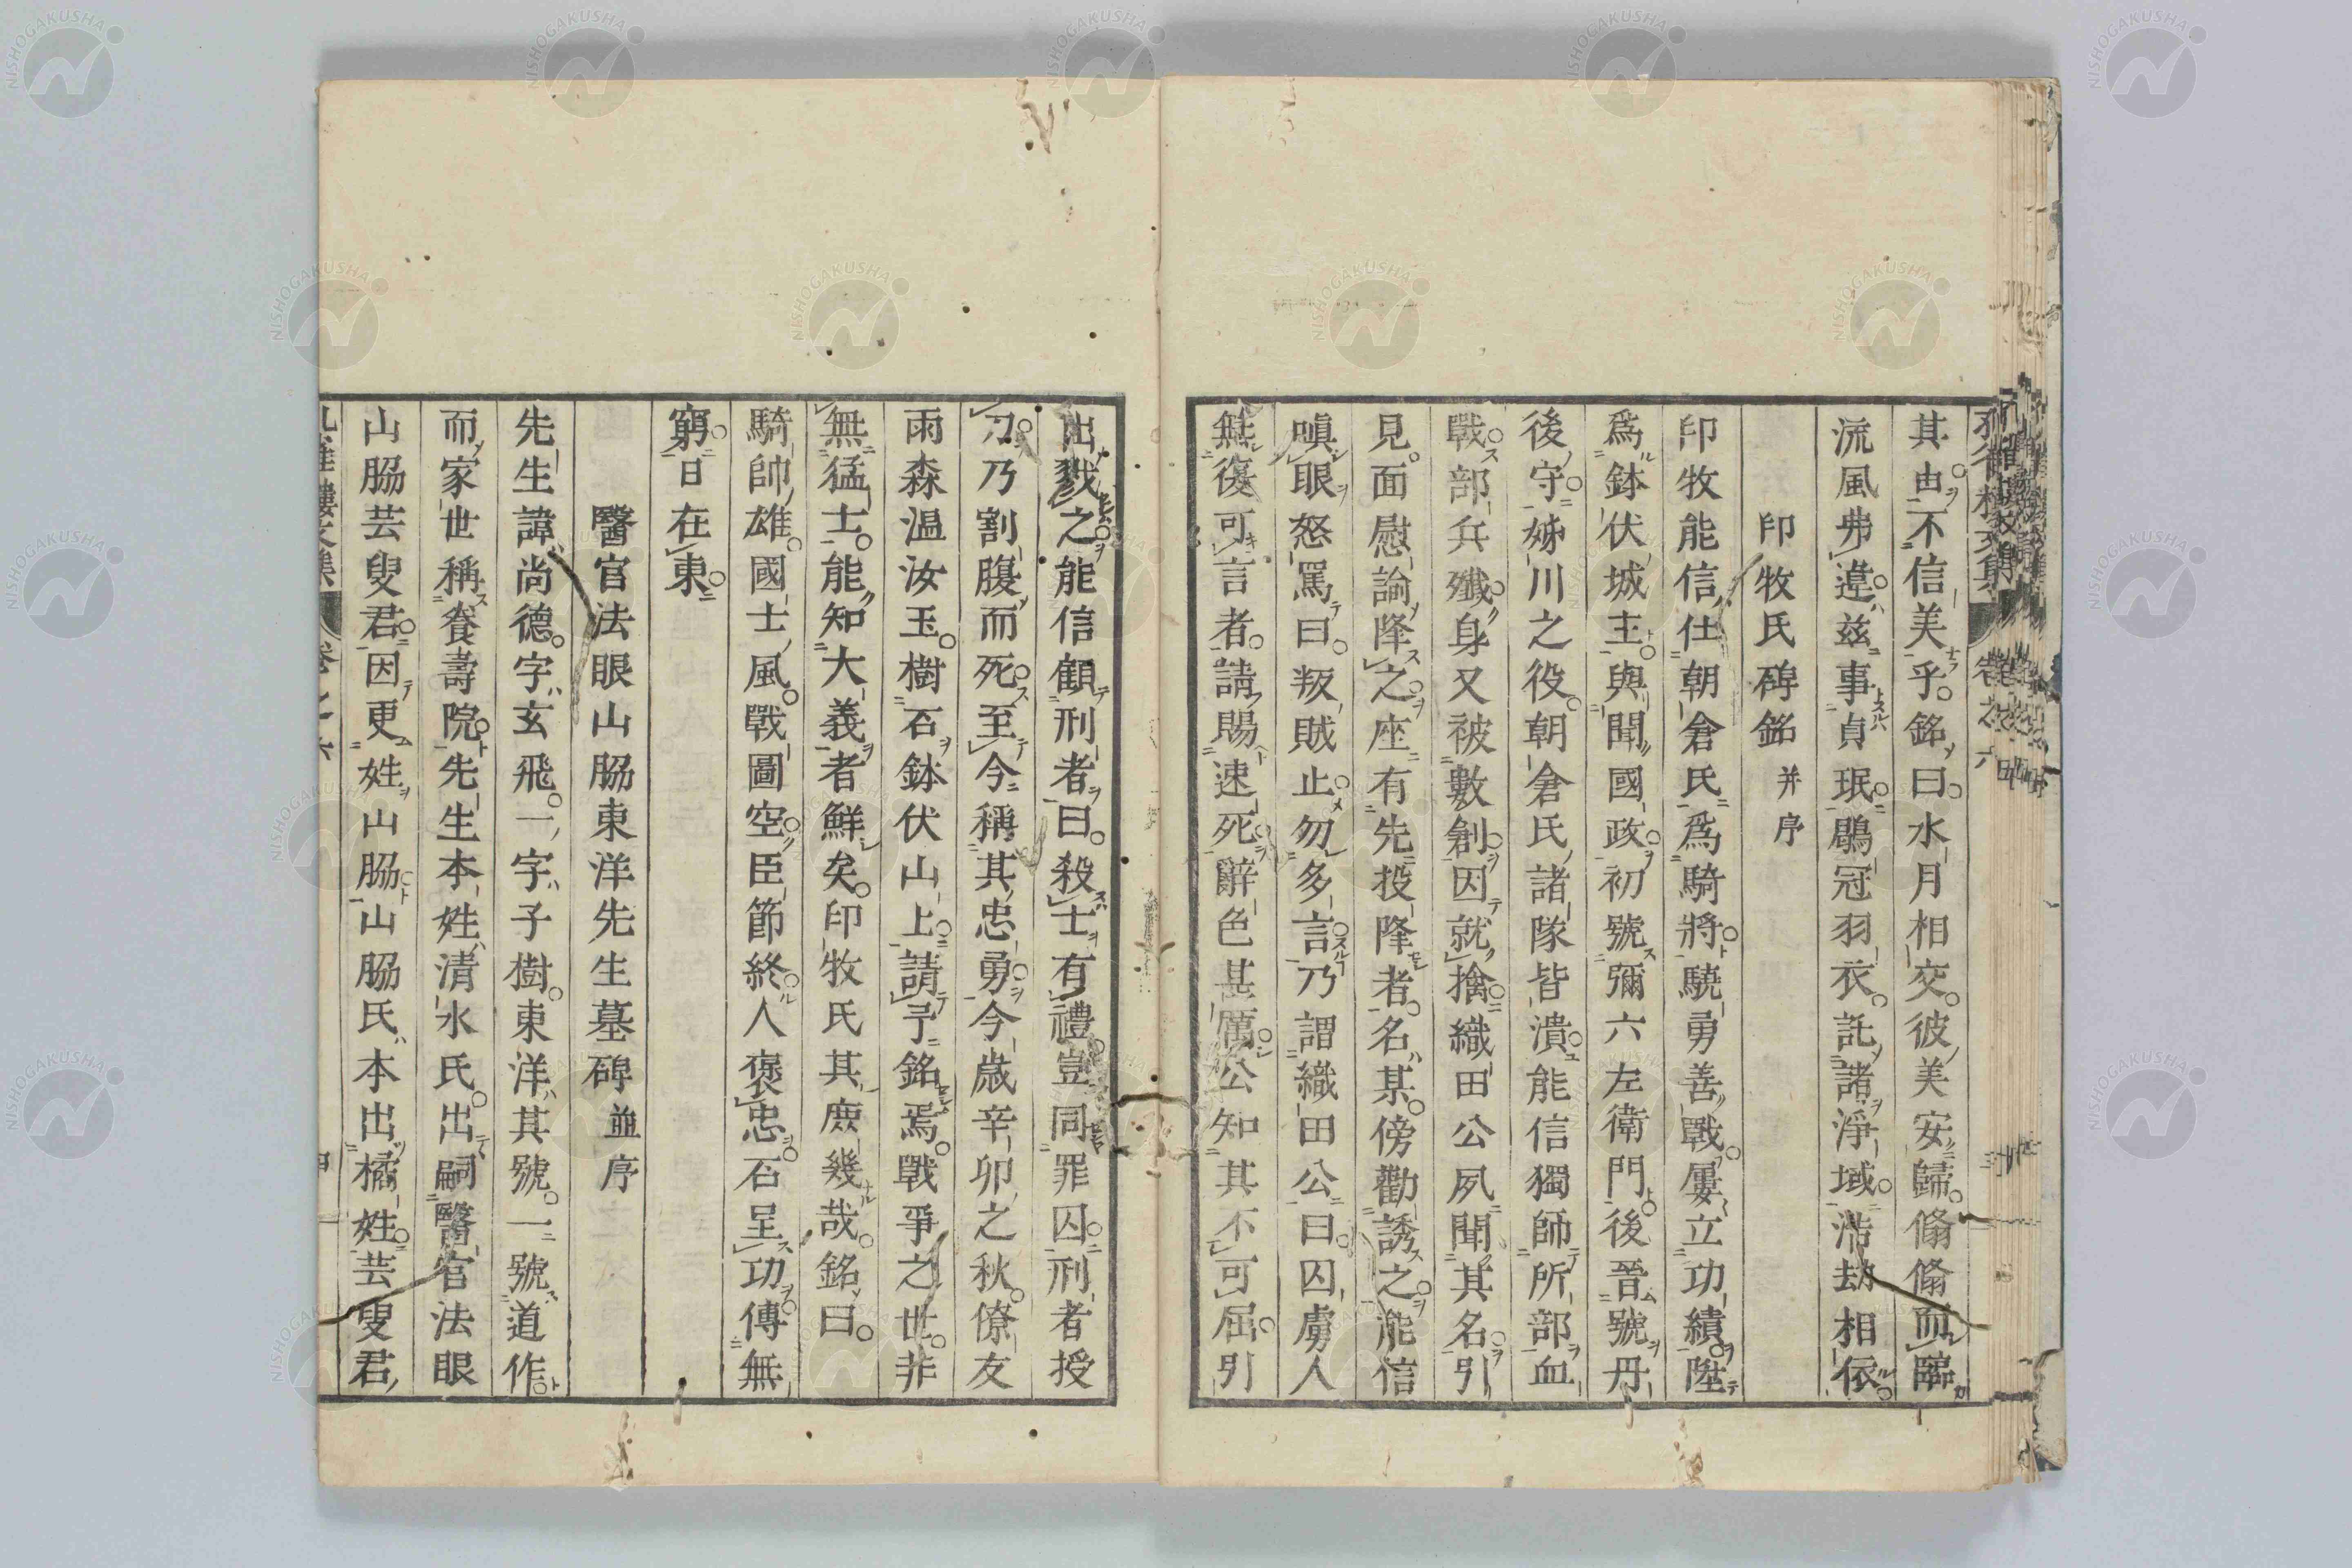 其由不信美乎銘曰水月相交彼美安歸翛翛而歸
流風弗遑茲事貞珉鶡冠羽衣託諸淨域浩劫相依
印牧氏碑銘并序
印牧能信仕朝倉氏爲騎將驍勇善戰屢立功績陞
爲鉢伏城主與聞國政初號彌六左衛門後晉號丹
後守姊川之役朝倉氏諸隊皆潰能信獨師所部血
戰部兵殲身又被數創因就擒織田公夙聞其名引
見面慰諭降之座有先投降者名某傍勸誘之能信
嗔眼怒罵曰叛賊止勿多言乃謂織田公曰囚虜人
無復可言者請賜速死辭色甚厲公知其不可屈引
出戮之能信顧刑者曰殺士有禮豈同罪囚刑者授
刀乃割腹而死至今稱其忠勇今歲辛卯之秋僚友
雨森溫汝玉樹石鉢伏山上請予銘焉戰爭之世非
無猛士能知大義者鮮矣印牧氏其庶幾哉銘曰
騎帥雄國士風戰圖空臣節終人褒忠石呈功傳無
窮日在東
醫官法眼山脇東洋先生墓碑並序
先生諱尚德字玄飛一字子樹東洋其號一號道作
而家世稱養壽院先生本姓清水氏出嗣醫官法眼
山脇芸叟君因更姓山脇山脇氏本出橘姓芸叟君